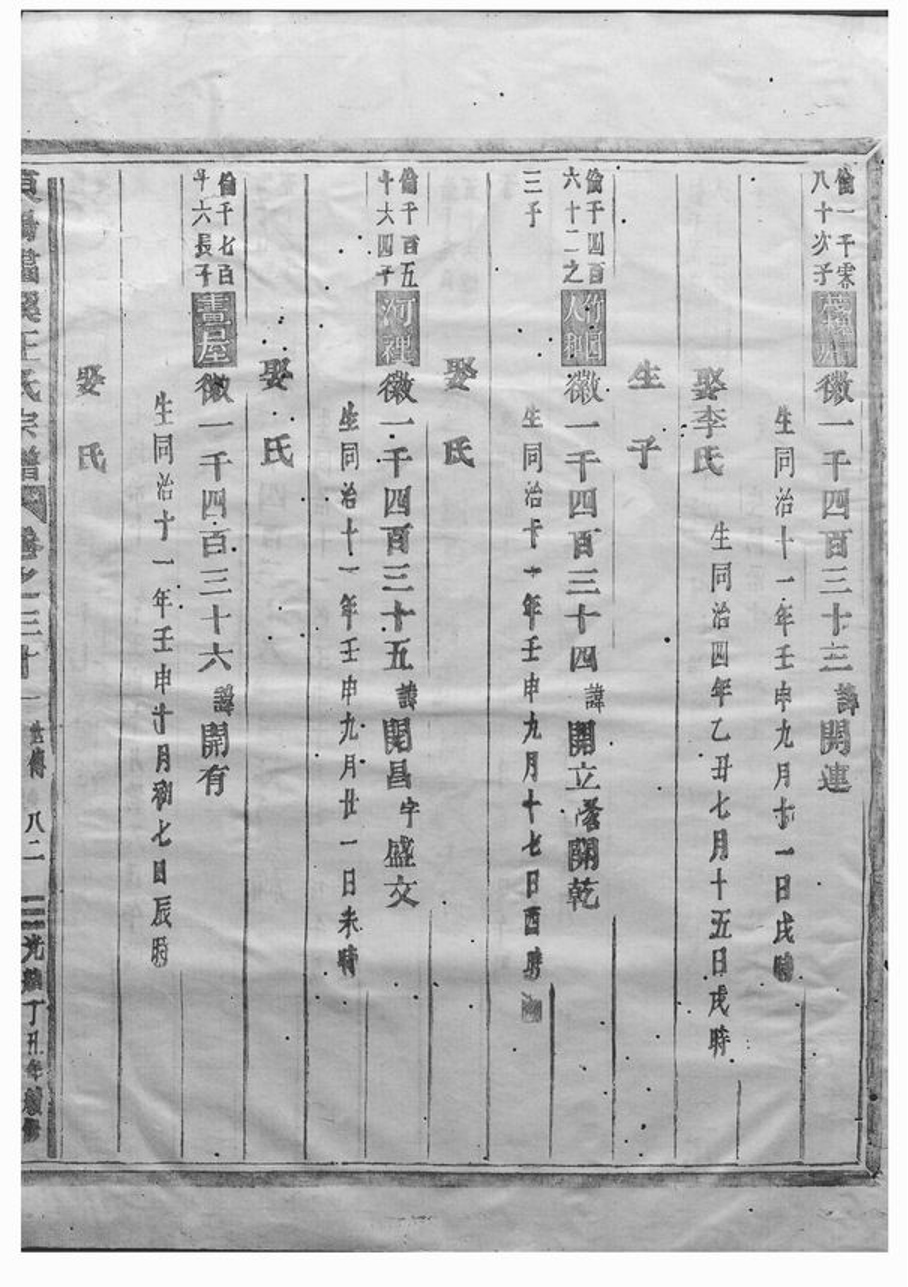 倫一千零
八十次子
徽一千四百三十三 諱開連
生同治十一年壬申九月十一日戌時
娶李氏
生同治四年乙丑七月十五日戌時
生子
倫千四百
六十二之
三子
竹園
徽一千四百三十四 諱開立 開乾
生同治十一年壬申九月十七日酉時
娶 氏
倫千百五
十六四子
河裡
徽一千四百三十五 諱開昌字盛交
生同治十一年壬申九月廿一日未時
娶 氏
倫千七百
十六長子
書屋
徽一千四百三十六 諱開有
生同治十一年壬申十月初七日辰時
娶 氏
王氏宗譜 卷之三十一 世傳 八二 光緒丁丑年續修